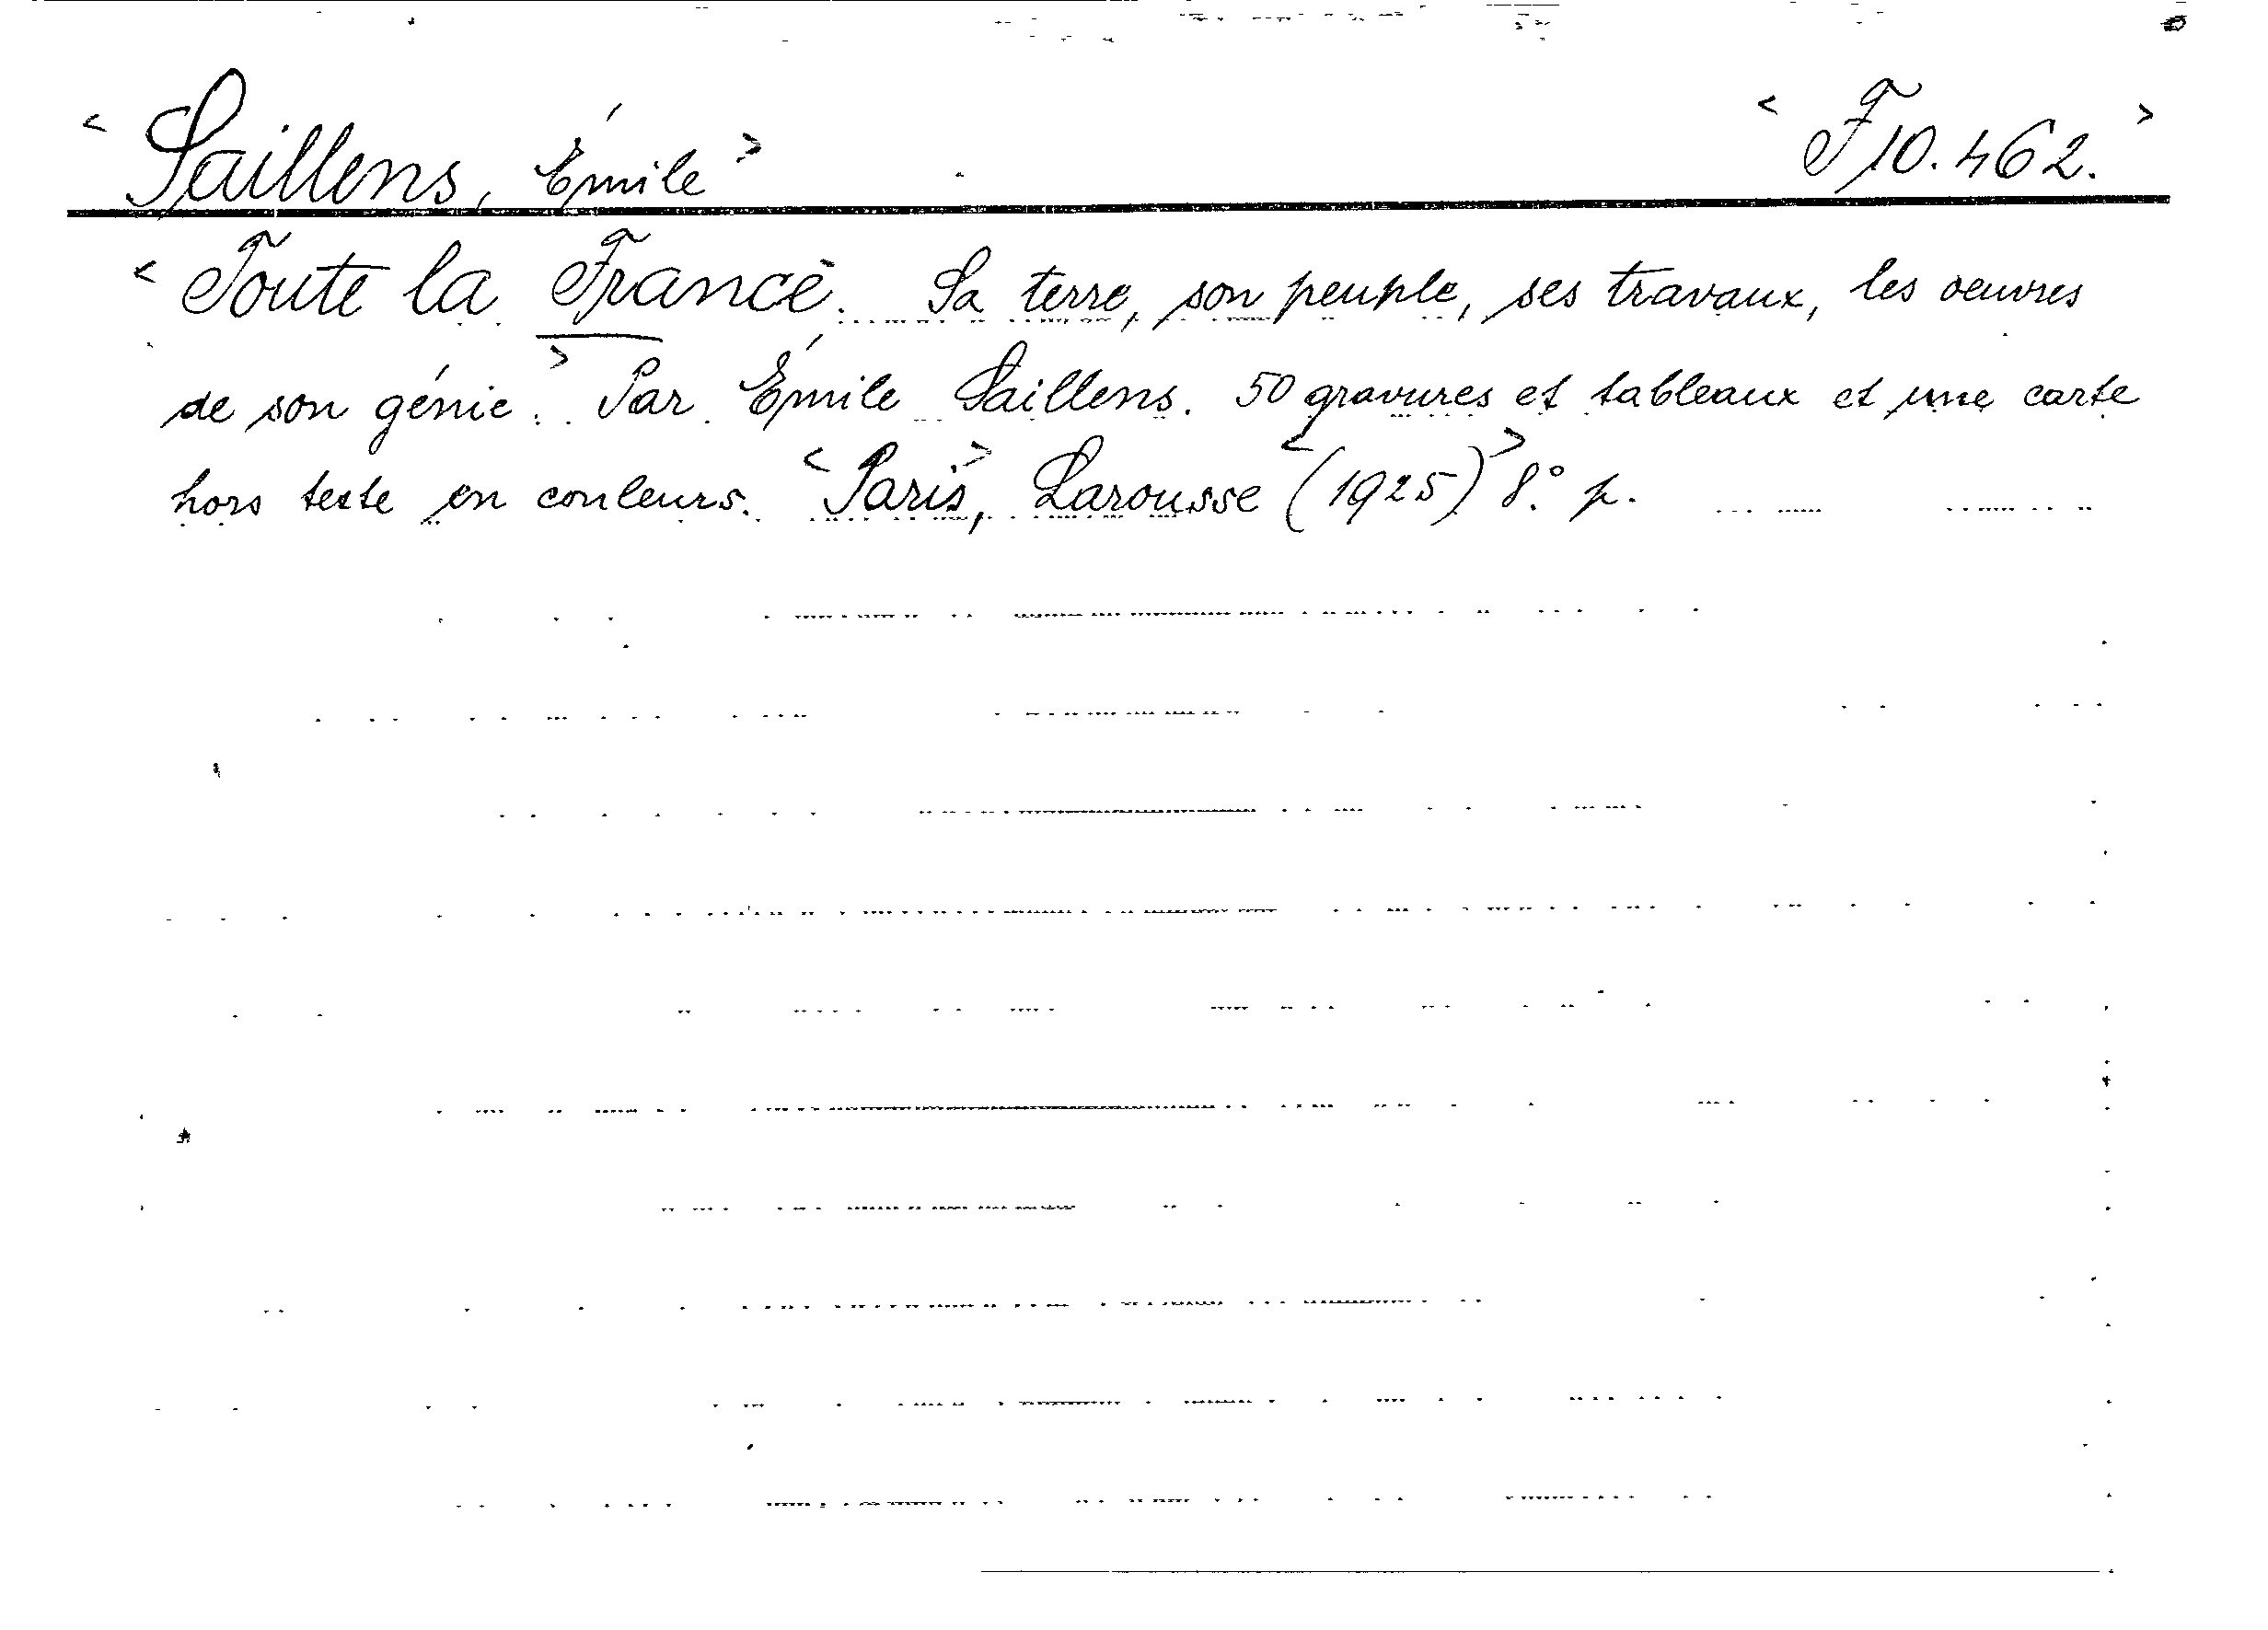 < Saillens, Émile > < F 10.462. >
< Toute la France. Sa terre, son peuple, ses travaux, les oeuvres
de son génie >. Par Émile Saillens. 50 gravures et tableaux et une carte
hors texte en couleurs. < Paris >, Larousse < (1925) > 8.° p.